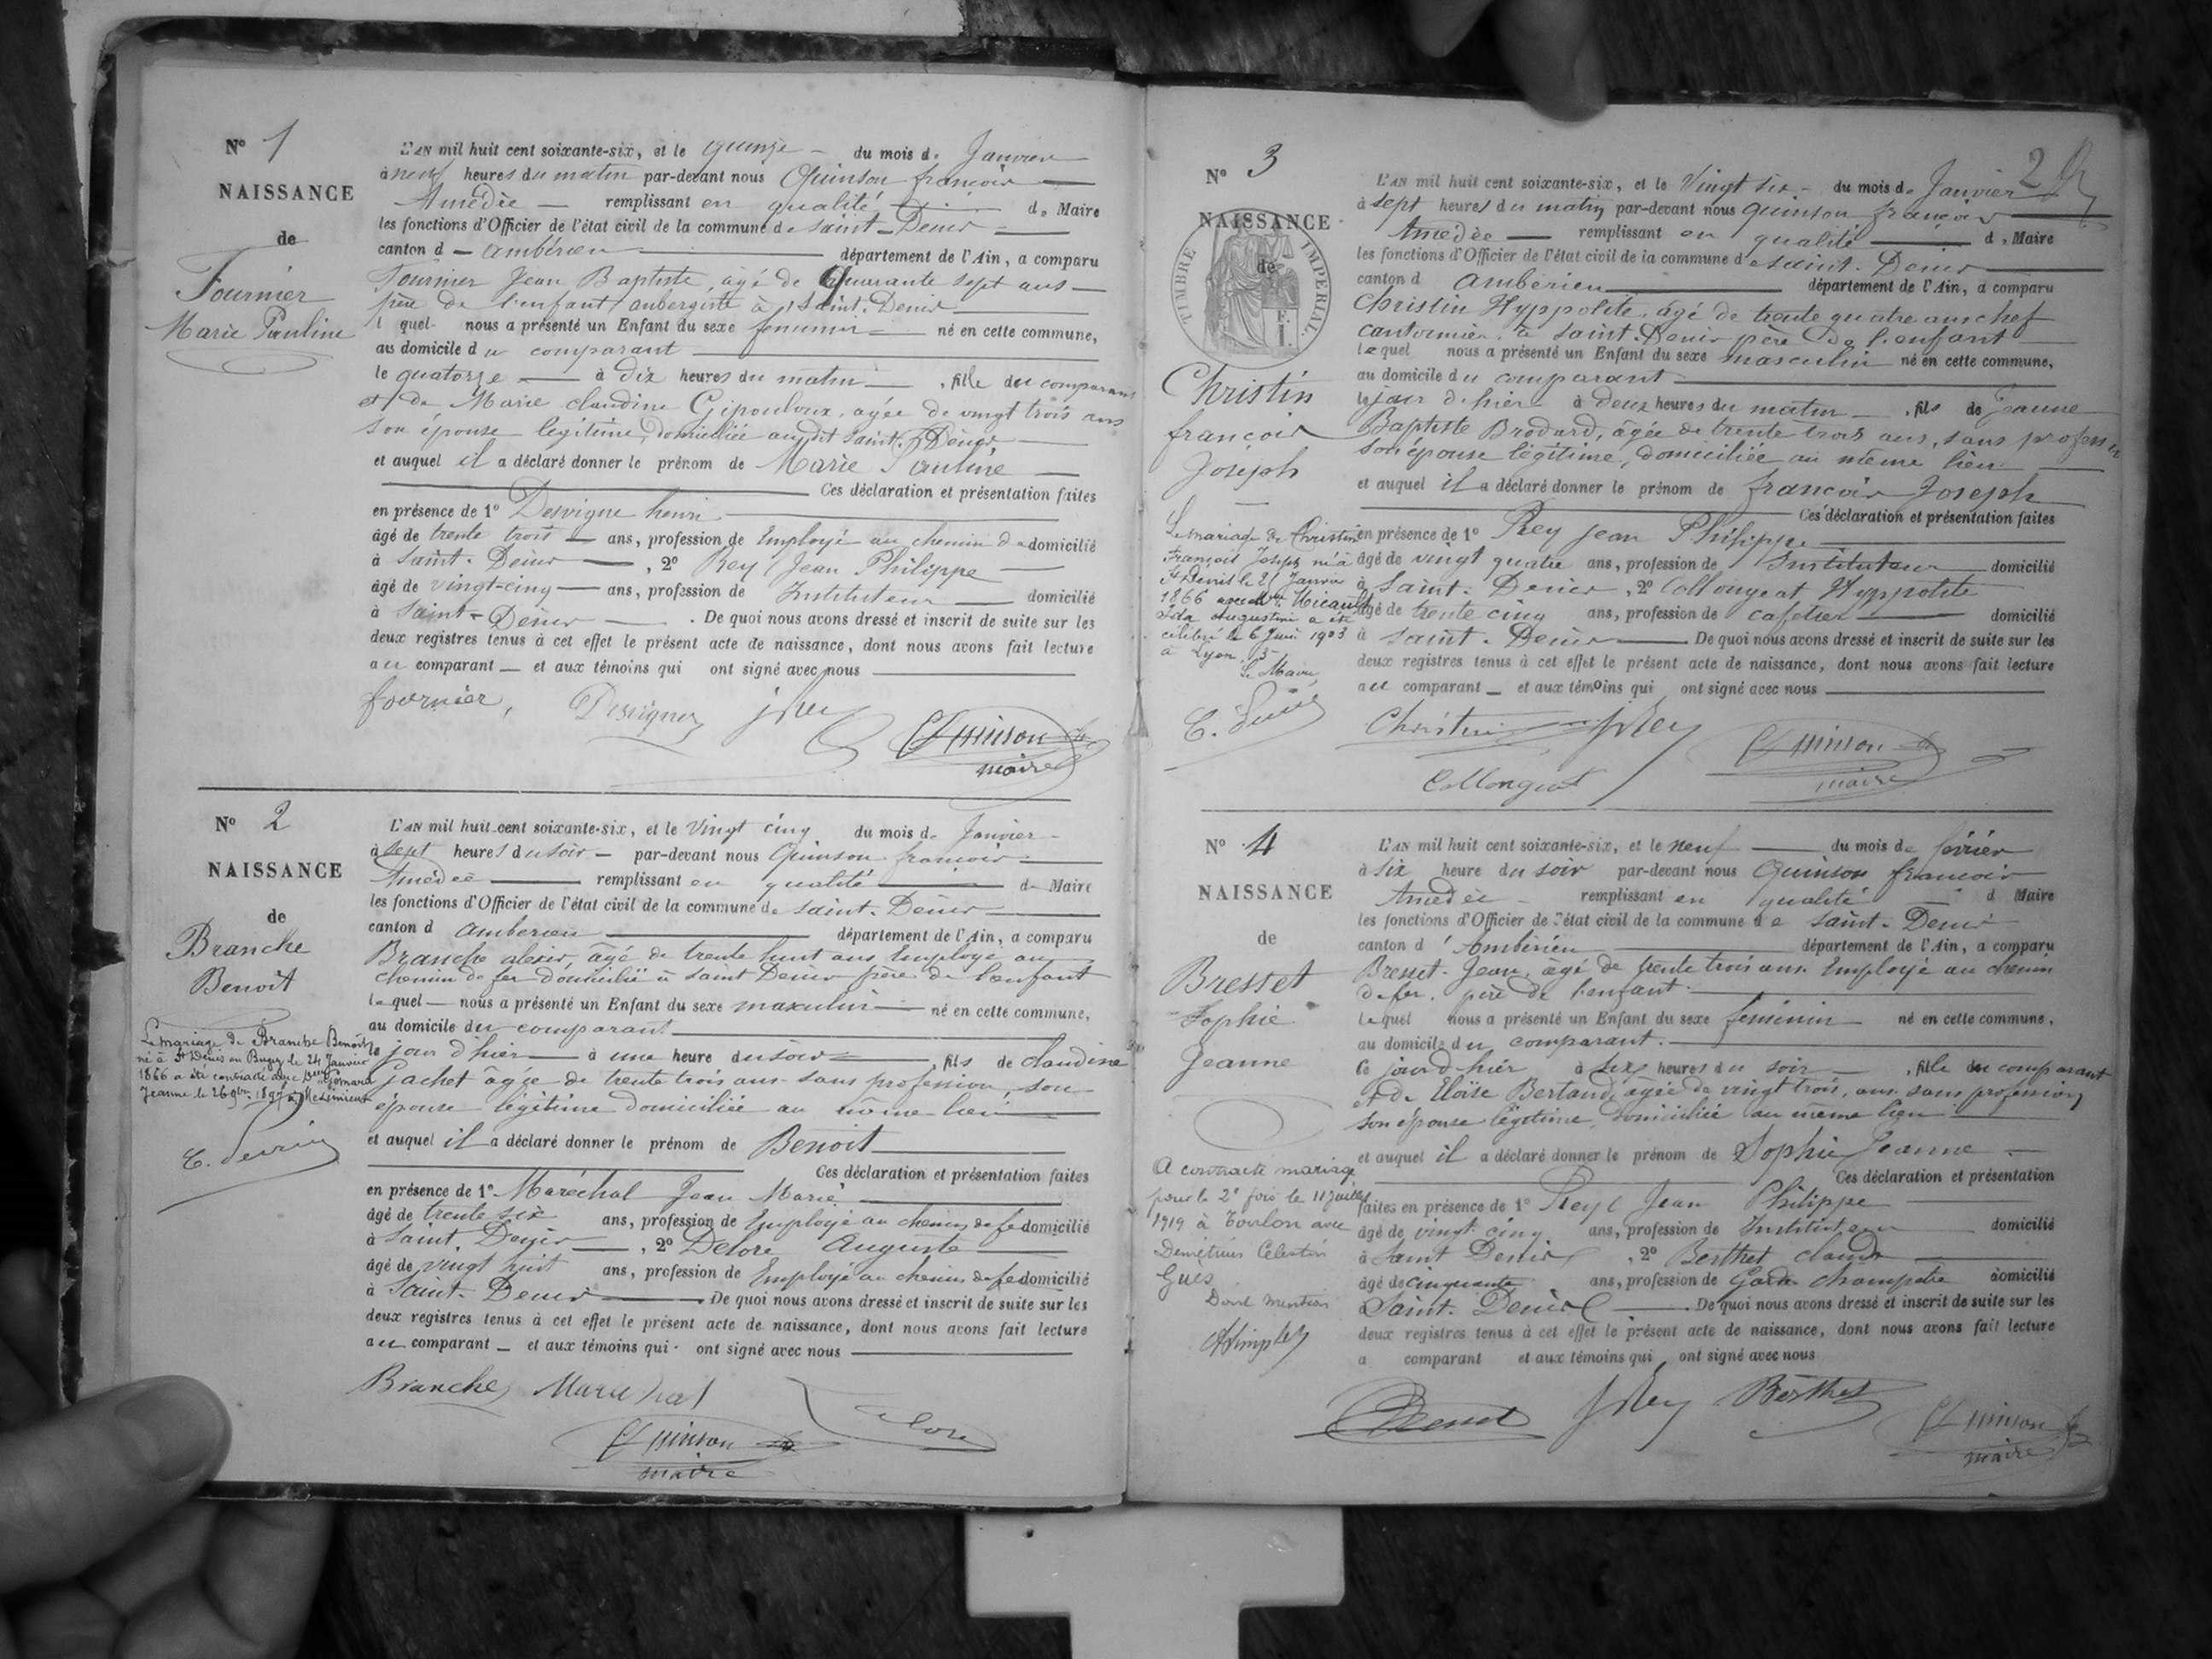 N° 1
NAISSANCE
de
Fournier
Marie Pauline
L'AN mil huit cent soixante-six, et le quinze du mois de Janvier
à neuf heures du matin par-devant nous Quinson françois
Amédée remplissant en qualité de Maire
les fonctions d'Officier de l'état civil de la commune de Saint-Denis
canton d ambérieu département de l'Ain, a comparu
Fournier Jean Baptiste, âgé de Quarante sept ans
père de l'enfant aubergiste à Saint-Denis
l quel nous a présenté un Enfant du sexe feminin né en cette commune,
au domicile du comparant
le quatorze à dix heures du matin, fille du comparant
et de Marie claudine Gipouloux, agée de vingt trois ans
son épouse légitime, domiciliée audit Saint-Denis
et auquel il a déclaré donner le prénom de Marie Pauline
Ces déclaration et présentation faites
en présence de 1° Desvigne henri
âgé de trente trois ans, profession de Employé au chemin de domicilié
à Saint-Denis, 2° Rey Jean Philippe
âgé de vingt-cinq ans, profession de Instituteur domicilié
à Saint-Denis. De quoi nous avons dressé et inscrit de suite sur les
deux registres tenus à cet effet le présent acte de naissance, dont nous avons fait lecture
au comparant et aux témoins qui ont signé avec nous
fournier, Desvignes jRey
Quinson
maire
N° 2
NAISSANCE
de
Branche
Benoit
Le mariage de Branche Benoit
né à St Denis en Bugey le 24 Janvier
1866 a été contracté avec
Jeanne le 26 9bre 189
L'AN mil huit cent soixante-six, et le Vingt cinq du mois de Janvier
à sept heures du soir par-devant nous Quinson françois
Amédée remplissant en qualité de Maire
les fonctions d'Officier de l'état civil de la commune de Saint-Denis
canton d amberieu département de l'Ain, a comparu
Branche alexis, âgé de trente huit ans Employé au
chemin de fer domicilié à Saint Denis père de l'enfant
lequel nous a présenté un Enfant du sexe masculin né en cette commune,
au domicile du comparant
le jour d'hier à une heure du soir, fils de claudine
Gachet âgée de trente trois ans sans profession, son
épouse légitime domiciliée au même lieu
et auquel il a déclaré donner le prénom de Benoit
Ces déclaration et présentation faites
en présence de 1° Maréchal Jean Marie
âgé de trente six ans, profession de Employé au chemin de fer domicilié
à Saint Denis, 2° Delore Auguste
âgé de vingt huit ans, profession de Employé au chemin de fer domicilié
à Saint-Denis. De quoi nous avons dressé et inscrit de suite sur les
deux registres tenus à cet effet le présent acte de naissance, dont nous avons fait lecture
au comparant et aux témoins qui ont signé avec nous
Branche Marechal
Delore
Quinson
maire
2
N° 3
NAISSANCE
de
TIMBRE IMPERIAL
F.
1.
Christin
françois
Joseph
Le mariage de Christin
François Joseph né à
St Denis le 25 Janvier
1866 avec Micault
Ida Augustine a été
célébré le 6 Juin 1903
à Lyon, 3e
Le Maire,
L'AN mil huit cent soixante-six, et le Vingt six du mois de Janvier
à sept heures du matin par-devant nous quinson françois
Amédée remplissant en qualité d Maire
les fonctions d'Officier de l'état civil de la commune de Saint-Denis
canton d Ambérieu département de l'Ain, a comparu
Christin Hyppolite, âgé de trente quatre ans chef
cantonnier, à Saint-Denis père de l'enfant
lequel nous a présenté un Enfant du sexe masculin né en cette commune,
au domicile du comparant
le jour d'hier à deux heures du matin, fils de Jeanne
Baptiste Brodard, âgée de trente trois ans, sans profession
son épouse légitime, domiciliée au même lieu
et auquel il a déclaré donner le prénom de françois Joseph
Ces déclaration et présentation faites
en présence de 1° Rey Jean Philippe
âgé de vingt quatre ans, profession de Instituteur domicilié
à Saint-Denis, 2° Collongeat Hyppolite
âgé de trente cinq ans, profession de cafetier domicilié
à Saint-Denis. De quoi nous avons dressé et inscrit de suite sur les
deux registres tenus à cet effet le présent acte de naissance, dont nous avons fait lecture
au comparant et aux témoins qui ont signé avec nous
Christin jRey
Quinson
maire
Collongeat
N° 4
NAISSANCE
de
Bresset
Sophie
Jeanne
A contracté mariage
pour la 2e fois le 11 Juillet
1919 à Toulon avec
Demétrius Célestin
Guès
Dont mention
L'AN mil huit cent soixante-six, et le neuf du mois de février
à six heure du soir par-devant nous Quinson françois
Amédée remplissant en qualité d Maire
les fonctions d'Officier de l'état civil de la commune de Saint-Denis
canton d'Ambérieu département de l'Ain, a comparu
Bresset Jean, âgé de trente trois ans Employé au chemin
de fer, père de l'enfant
lequel nous a présenté un Enfant du sexe feminin né en cette commune,
au domicile du comparant.
le jour d'hier à six heures du soir, fille du comparant
et de Eloïse Bertaud, agée de vingt trois ans sans profession
son épouse légitime, domiciliée au même lieu
et auquel il a déclaré donner le prénom de Sophie Jeanne
Ces déclaration et présentation
faites en présence de 1° Rey Jean Philippe
âgé de vingt cinq ans, profession de Instituteur domicilié
à Saint Denis, 2° Berthet claude
âgé de cinquante ans, profession de Garde champetre domicilié
à Saint-Denis. De quoi nous avons dressé et inscrit de suite sur les
deux registres tenus à cet effet le présent acte de naissance, dont nous avons fait lecture
a comparant et aux témoins qui ont signé avec nous
Bresset jRey Berthet
Quinson
maire